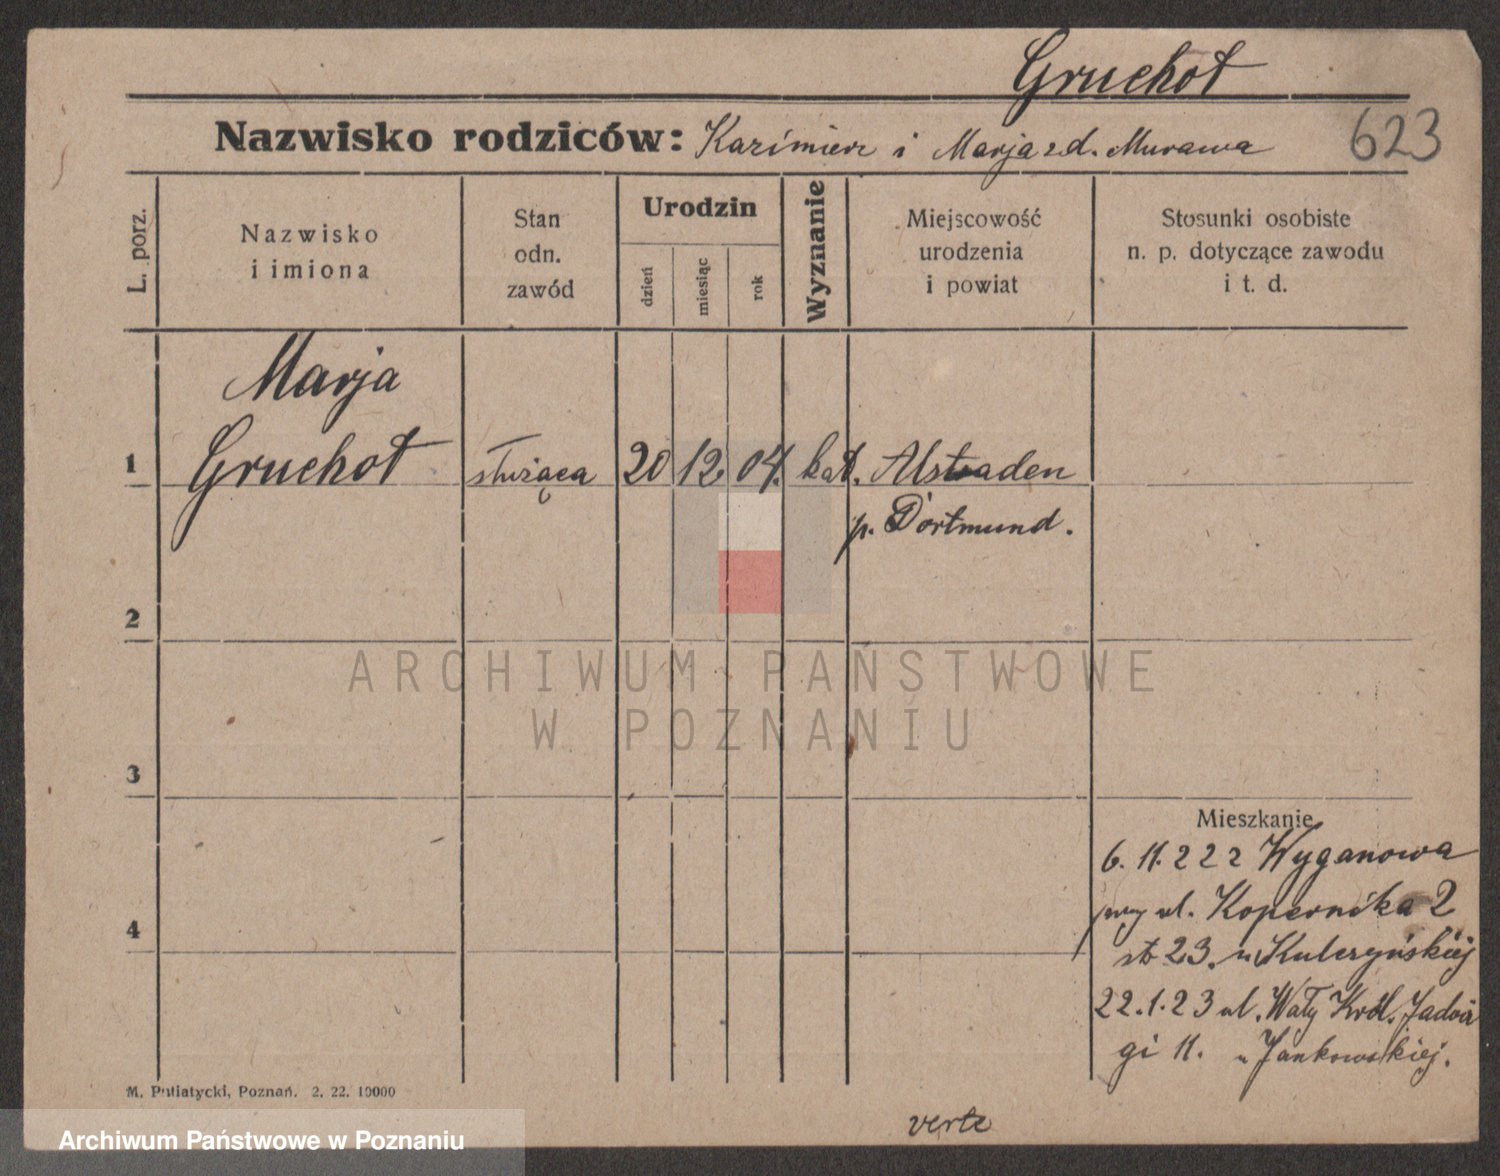 Gruchot
Nazwisko rodziców: Kazimierz i Marja z d. Murawa 623
L. porz.
Nazwisko
i imiona
Stan
odn.
zawód
Urodzin
dzień
miesiąc
rok
Wyznanie
Miejscowość
urodzenia
i powiat
Stosunki osobiste
n. p. dotyczące zawodu
i t. d.
Marja
1 Gruchot służąca 20 12 04. kat. Alstaden
p. Dortmund.
2
ARCHIWUM PAŃSTWOWE
W POZNANIU
3
Mieszkanie
6. 11. 22 z Wyganowa
ul. Kopernika 2
4
23. u Kulczyńskiej
22.1.23 ul. Wały Król. Jadwi
gi 11. u Jankowskiej.
M. Putiatycki, Poznań. 2. 22. 10000
verte
Archiwum Państwowe w Poznaniu